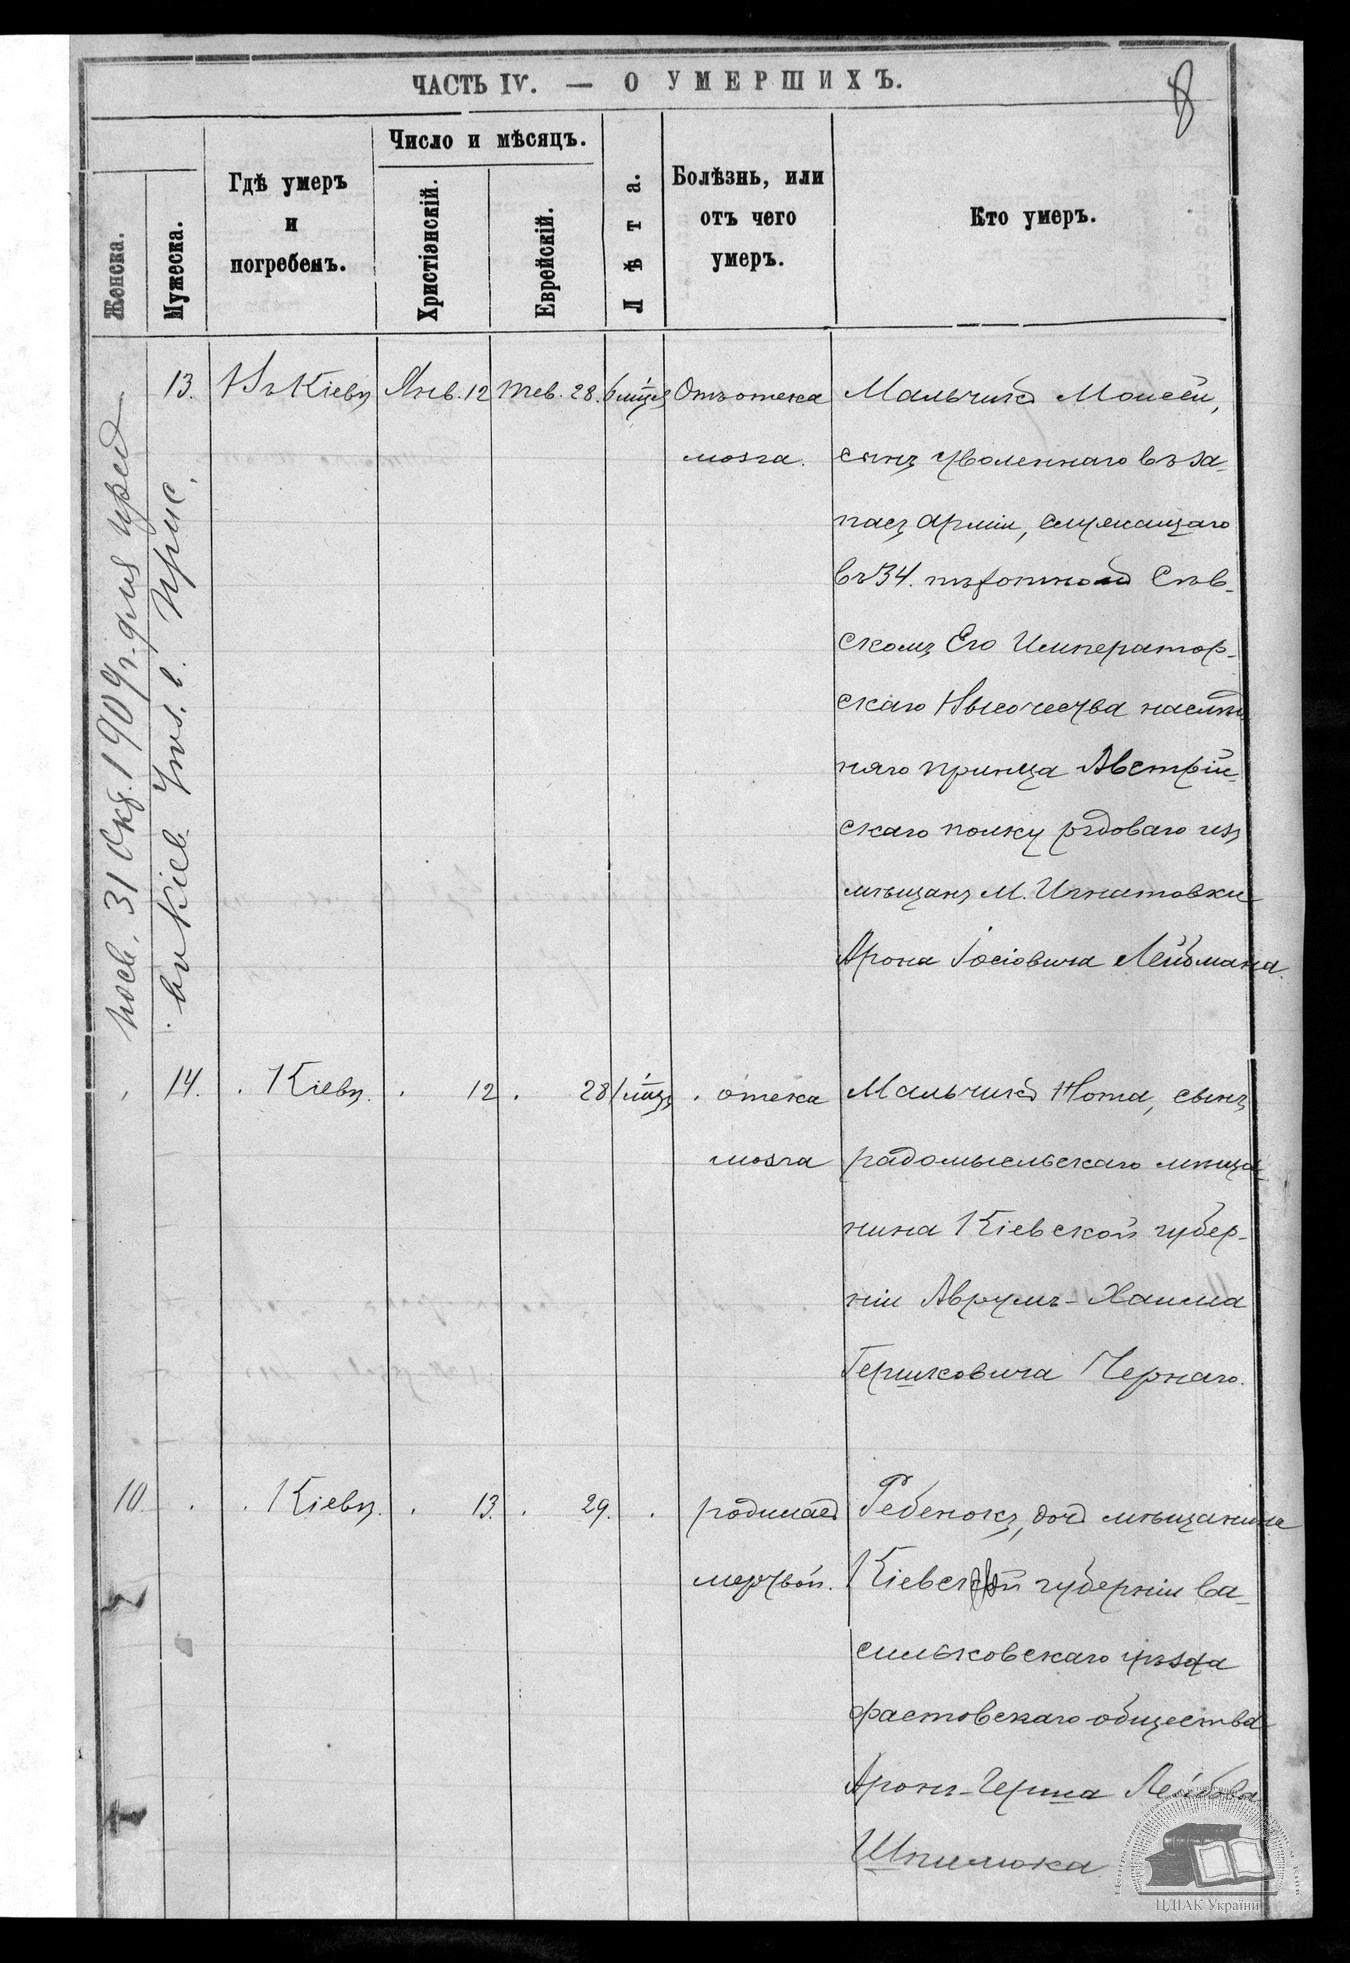 ЧАСТЬ IV. — О УМЕРШИХЪ.
8
Женска.
Мужеска.
Гдѣ умеръ
и
погребенъ.
Число и мѣсяцъ.
Христіанскій.
Еврейскій.
Лѣта.
Болѣзнь, или
отъ чего
умеръ.
Кто умеръ.
13. Въ Кіевѣ Янв. 12 Тев. 28. 6 мѣц. Отъ отека
мозга.
Мальчикъ Моисей,
сынъ уволеннаго въ за-
пасъ арміи, служащаго
въ 34. пѣхотномъ Сѣв-
скомъ Его Император-
скаго Высочества наслѣд
няго принца Австрій-
скаго полку рядоваго изъ
мѣщанъ М. Игнатовки
Арона Іосіовича Лейбмана.
14. Кіевѣ. 12 28 1 мѣц. отека
мозга
Мальчикъ Нота, сынъ
радомысльскаго мѣща-
нина Кіевской губер-
ніи Аврумъ-Хаима
Гершковича Чернаго.
10. Кіевѣ. 13. 29. родилась
мертвой.
Ребенокъ, дочь мѣщанина
Кіевской губерніи Ва-
сильковскаго уѣзда
фастовскаго общества
Аронъ-Герша Лейбова
Шпилюка
31 Окт. 1909 г. для пред
въ Кіев.
ЦДІАК України